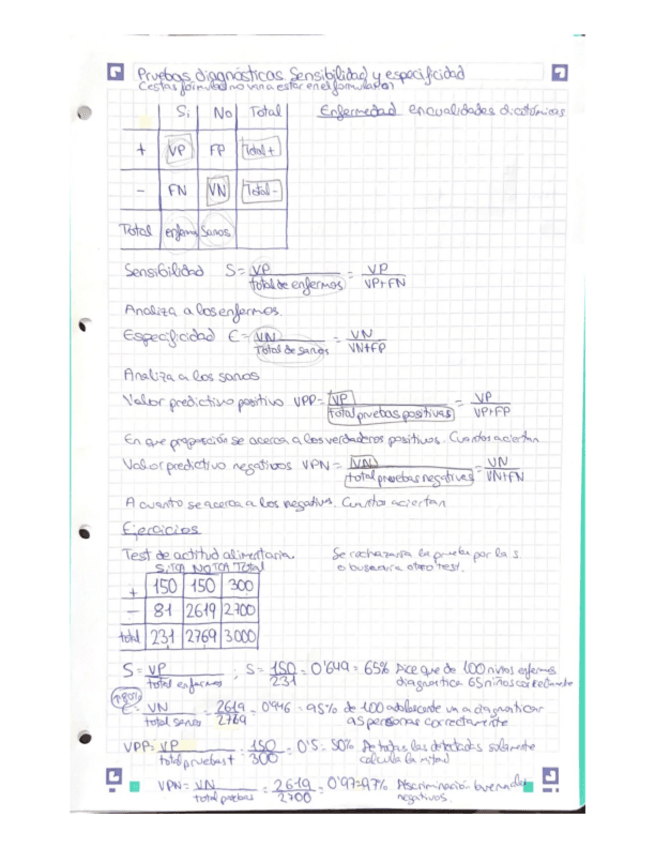 Pruebas diagnósticas Sensibilidad y especificidad
(estas fórmulas no van a estar en el formulario)
Sí No Total Enfermedad en cualidades dicotómicas
+ VP FP Total +
- FN VN Total -
Total enfermos Sanos
Sensibilidad S = VP / total de enfermos = VP / VP+FN
Analiza a los enfermos.
Especificidad E = VN / Total de sanos = VN / VN+FP
Analiza a los sanos
Valor predictivo positivo VPP = VP / total pruebas positivas = VP / VP+FP
En que proporción se acerca a los verdaderos positivos. Cuantos aciertan
Valor predictivo negativos VPN = VN / total pruebas negativas = VN / VN+FN
A cuanto se acerca a los negativos. Cuantos aciertan
Ejercicios
Test de actitud alimentaria. Se rechazaria la prueba por la S.
o buscaria otro test.
Si TCA NO TCA Total
+ 150 150 300
- 81 2619 2700
total 231 2769 3000
S = VP / total enfermos ; S = 150 / 231 = 0'649 = 65% Dice que de 100 niños enfermos
diagnostica 65 niños correctamente
↑80%
E = VN / total sanos = 2619 / 2769 = 0'946 = 95% de 100 adolescente va a diagnosticar
a 95 personas correctamente
VPP = VP / total pruebas + = 150 / 300 = 0'5 = 50% De todas las detectadas solamente
calcula la mitad
VPN = VN / total pruebas = 2619 / 2700 = 0'97 = 97% Discriminación buena de
negativos.